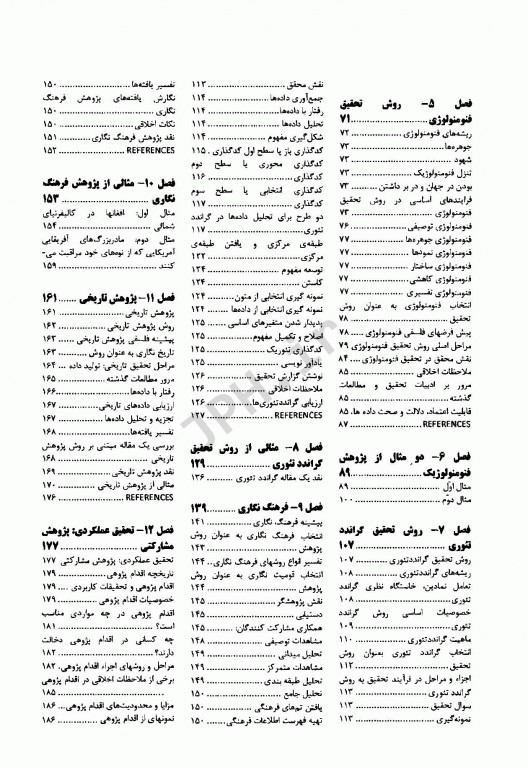 فصل ۵- روش تحقیق
فنومنولوژی ........ ۷۱
ریشه‌های فنومنولوژی ........ ۷۲
جوهره‌ها ........ ۷۳
شهود ........ ۷۳
تنزل فنومنولوژیک ........ ۷۳
بودن در جهان و در بر داشتن ........ ۷۳
فرایندهای اساسی در روش تحقیق
فنومنولوژی ........ ۷۳
فنومنولوژی توصیفی ........ ۷۶
فنومنولوژی جوهره‌ها ........ ۷۷
فنومنولوژی نمودها ........ ۷۷
فنومنولوژی ساختار ........ ۷۷
فنومنولوژی کاهشی ........ ۷۷
فنومنولوژی تفسیری ........ ۷۷
انتخاب فنومنولوژی به عنوان روش
تحقیق ........
پیش فرضهای فلسفی فنومنولوژی .... ۷۸
مراحل اصلی روش تحقیق فنومنولوژی ۷۹
نقش محقق در تحقیق فنومنولوژی .... ۸۴
ملاحظات اخلاقی ........ ۸۵
مرور بر ادبیات تحقیق و مطالعات
گذشته ........ ۸۵
قابلیت اعتماد، دلالت و صحت داده ها. ۸۵
REFERENCES ........ ۸۷
فصل ۶- دو مثال از پژوهش
فنومنولوژیک ........ ۸۹
مثال اول ........ ۸۹
مثال دوم ........ ۱۰۰
فصل ۷- روش تحقیق گراندد
تئوری ........ ۱۰۷
روش تحقیق گرانددتئوری ........ ۱۰۷
ریشه‌های گرانددتئوری ........ ۱۰۸
تعامل نمادین، خاستگاه نظری گراندد
تئوری ........ ۱۰۸
خصوصیات اساسی روش گراندد
تئوری ........ ۱۰۹
ماهیت گرانددتئوری ........ ۱۱۰
انتخاب گراندد تئوری بعنوان روش
تحقیق ........ ۱۱۲
اجزاء و مراحل در فرآیند تحقیق به روش
گراندد تئوری ........ ۱۱۳
سوال تحقیق ........ ۱۱۳
نمونه‌گیری ........ ۱۱۳
نقش محقق ........ ۱۱۳
جمع‌آوری داده‌ها ........ ۱۱۴
رفتار با داده‌ها ........ ۱۱۴
تحلیل داده‌ها ........ ۱۱۴
شکل‌گیری مفهوم ........ ۱۱۴
کدگذاری باز یا سطح اول کدگذاری . ۱۱۵
کدگذاری محوری یا سطح دوم
کدگذاری ........ ۱۱۶
کدگذاری انتخابی یا سطح سوم
کدگذاری ........ ۱۱۷
دو طرح برای تحلیل داده‌ها در گراندد
تئوری ........ ۱۱۷
طبقه‌ی مرکزی و یافتن طبقه‌ی
مرکزی ........ ۱۲۲
توسعه مفهوم ........ ۱۲۴
کاستن ........ ۱۲۴
نمونه گیری انتخابی از متون ........ ۱۲۴
نمونه گیری انتخابی از داده‌ها ........ ۱۲۴
پدیدار شدن متغیرهای اساسی ........ ۱۲۵
اصلاح و تکمیل مفهوم ........ ۱۲۵
کدگذاری تئوریک ........ ۱۲۵
یادآور نویسی ........ ۱۲۵
نوشتن گزارش تحقیق ........ ۱۲۶
ملاحظات اخلاقی ........ ۱۲۶
ارزیابی گرانددتئوری‌ها ........ ۱۲۶
REFERENCES ........ ۱۲۷
فصل ۸- مثالی از روش تحقیق
گراندد تئوری ........ ۱۲۹
نقد یک مقاله گراندد تئوری ........ ۱۳۶
فصل ۹- فرهنگ نگاری ........ ۱۳۹
پیشینه فرهنگ نگاری ........ ۱۴۱
انتخاب فرهنگ نگاری به عنوان روش
پژوهش ........ ۱۴۳
تفسیر انواع روشهای فرهنگ نگاری.. ۱۴۴
انتخاب قومیت نگاری به عنوان روش
پژوهش ........ ۱۴۴
نقش پژوهشگر ........ ۱۴۵
دستیابی ........ ۱۴۵
همکاری مشارکت کنندگان: ........ ۱۴۵
مشاهدات توصیفی ........ ۱۴۸
تحلیل میدانی ........ ۱۴۹
مشاهدات متمرکز ........ ۱۴۹
تحلیل طبقه بندی ........ ۱۴۹
تحلیل جامع ........ ۱۵۰
یافتن تم‌های فرهنگی ........ ۱۵۰
تهیه فهرست اطلاعات فرهنگی ........ ۱۵۰
تفسیر یافته‌ها ........ ۱۵۰
نگارش یافته‌های پژوهش فرهنگ
نگاری ........ ۱۵۰
نکات اخلاقی ........ ۱۵۰
نقد پژوهش فرهنگ نگاری ........ ۱۵۱
REFERENCES ........ ۱۵۲
فصل ۱۰- مثالی از پژوهش فرهنگ
نگاری ........ ۱۵۳
مثال اول: افغانها در کالیفرنیای
شمالی ........ ۱۵۴
مثال دوم: مادربزرگ‌های آفریقایی
آمریکایی که از نوه‌های خود مراقبت می-
کنند ........ ۱۵۹
فصل ۱۱- پژوهش تاریخی ...... ۱۶۱
پژوهش تاریخی ........ ۱۶۱
روش پژوهش تاریخی ........ ۱۶۲
پیشینه فلسفی پژوهش تاریخی ...... ۱۶۲
تاریخ نگاری به عنوان روش ........ ۱۶۳
مراحل تحقیق تاریخی: تولید داده ... ۱۶۴
مرور مطالعات گذشته ........ ۱۶۵
رفتار با داده‌ها ........ ۱۶۶
ارزیابی داده‌های تاریخی ........ ۱۶۷
تجزیه و تحلیل داده‌ها ........ ۱۶۷
تفسیر یافته‌ها ........ ۱۶۸
بررسی یک مقاله مبتنی بر روش پژوهش
تاریخی ........ ۱۶۸
نقد پژوهش تاریخی ........ ۱۶۹
مثالی از پژوهش تاریخی ........ ۱۷۰
REFERENCES ........ ۱۷۶
فصل ۱۲- تحقیق عملکردی: پژوهش
مشارکتی ........ ۱۷۷
تحقیق عملکردی: پژوهش مشارکتی ۱۷۷
تاریخچه اقدام پژوهی ........ ۱۷۹
اقدام پژوهی و تحقیقات کاربردی .... ۱۷۹
خصوصیات اقدام پژوهی ........ ۱۷۹
اقدام پژوهی در چه مواردی مناسب
است؟ ........ ۱۸۱
چه کسانی در اقدام پژوهی دخالت
دارند؟ ........ ۱۸۲
مراحل و روشهای اجراء اقدام پژوهی. ۱۸۲
برخی از ملاحظات اخلاقی در اقدام پژوهی
........ ۱۸۵
مزایا و محدودیت‌های اقدام پژوهی .. ۱۸۶
نمونهای از اقدام پژوهی ........ ۱۸۶